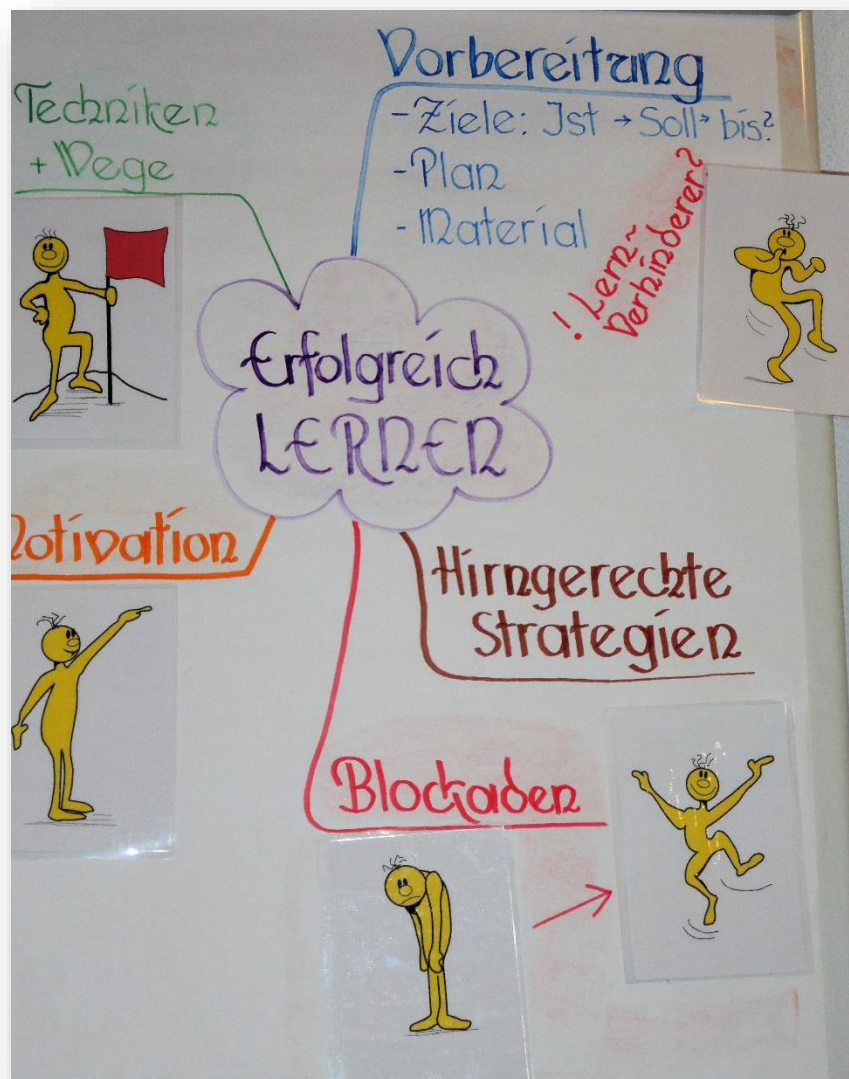 Techniken
+ Wege
Vorbereitung
- Ziele: Ist → Soll → bis?
- Plan
- Material
! Lern~
Verhinderer?
Erfolgreich
LERNEN
Motivation
Hirngerechte
Strategien
Blockaden